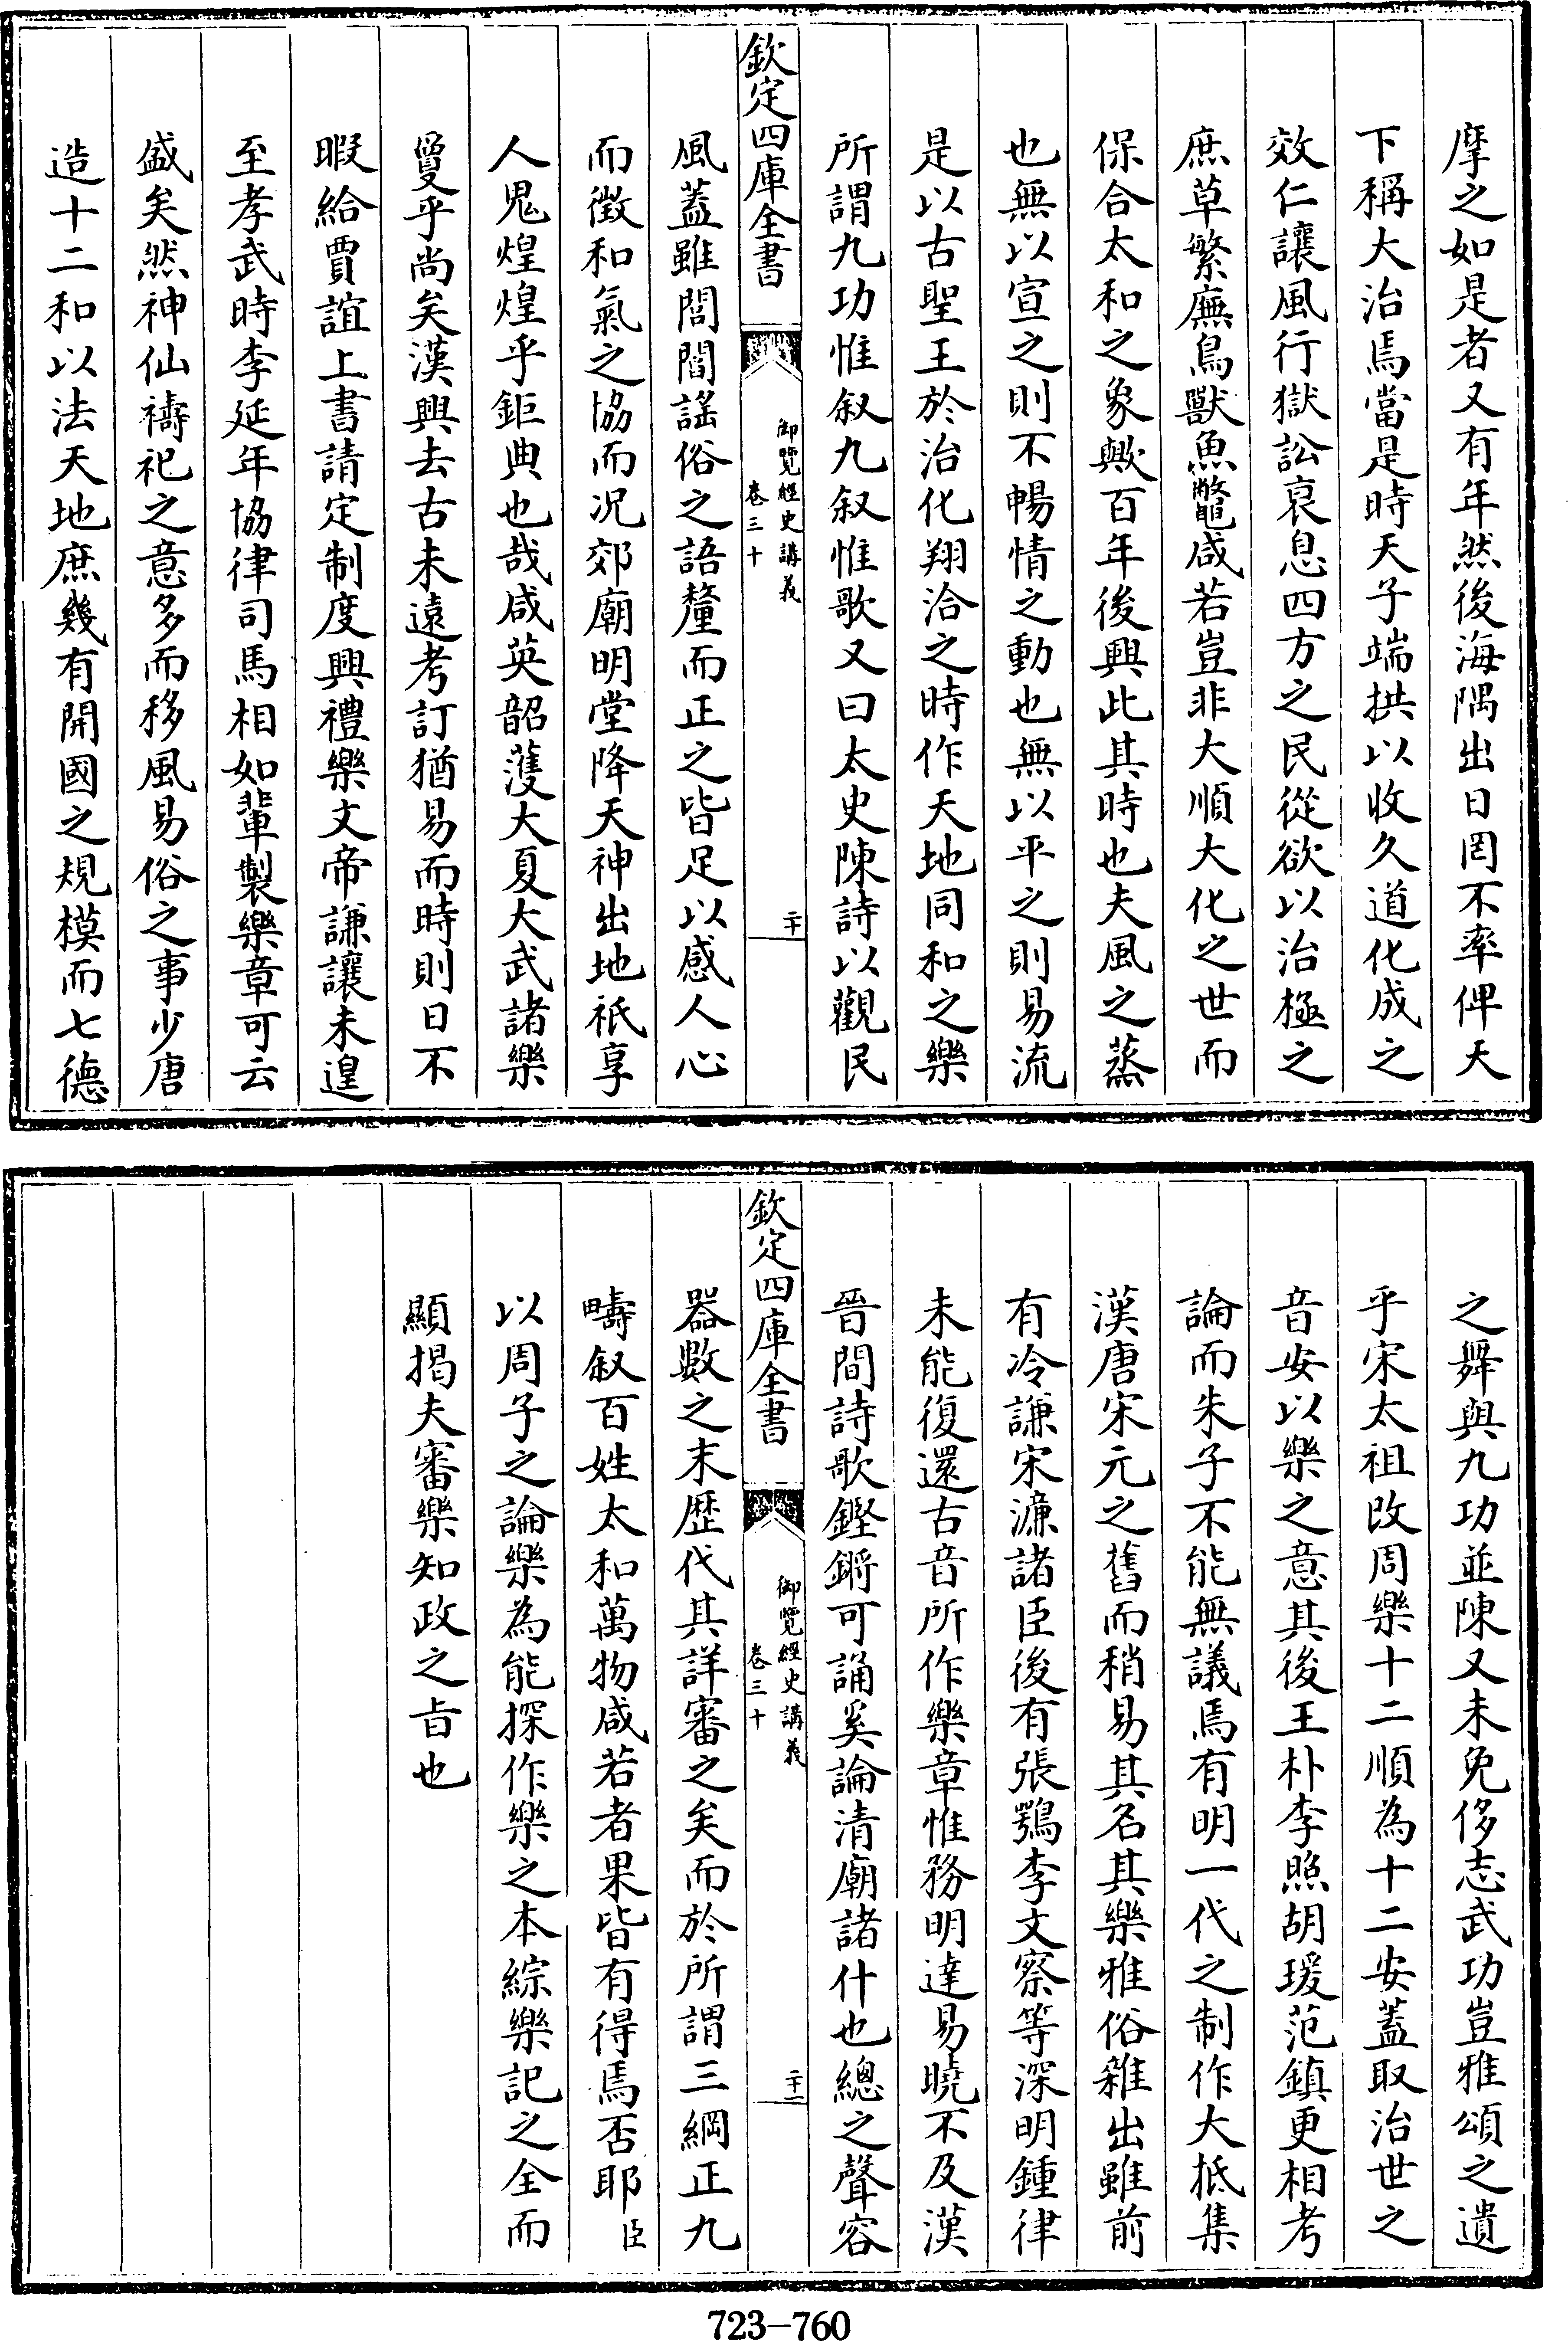 摩之如是者又有年然後海隅出日罔不率俾天
下稱大治焉當是時天子端拱以收久道化成之
效仁讓風行獄訟衰息四方之民從欲以治極之
庶草繁廡鳥獸魚鼈咸若豈非大順大化之世而
保合太和之象歟百年後興此其時也夫風之蒸
也無以宣之則不暢情之動也無以平之則易流
是以古聖王於治化翔洽之時作天地同和之樂
所謂九功惟叙九叙惟歌又曰太史陳詩以觀民
欽定四庫全書
御覽經史講義
卷三十
二十
風蓋雖閭閻謠俗之語釐而正之皆足以感人心
而徵和氣之協而况郊廟明堂降天神出地祇享
人鬼煌煌乎鉅典也哉咸英韶濩大夏大武諸樂
敻乎尚矣漢興去古未遠考訂猶易而時則日不
暇給賈誼上書請定制度興禮樂文帝謙讓未遑
至孝武時李延年協律司馬相如輩製樂章可云
盛矣然神仙禱祀之意多而移風易俗之事少唐
造十二和以法天地庶幾有開國之規模而七德
之舞與九功並陳又未免侈志武功豈雅頌之遺
乎宋太祖改周樂十二順為十二安蓋取治世之
音安以樂之意其後王朴李照胡瑗范鎮更相考
論而朱子不能無議焉有明一代之制作大抵集
漢唐宋元之舊而稍易其名其樂雅俗雜出雖前
有冷謙宋濂諸臣後有張鶚李文察等深明鍾律
未能復還古音所作樂章惟務明達易曉不及漢
晉間詩歌鏗鏘可誦奚論清廟諸什也總之聲容
欽定四庫全書
御覽經史講義
卷三十
二十一
器數之末歷代其詳審之矣而於所謂三綱正九
疇叙百姓太和萬物咸若者果皆有得焉否耶臣
以周子之論樂為能探作樂之本綜樂記之全而
顯揭夫審樂知政之旨也
723-760